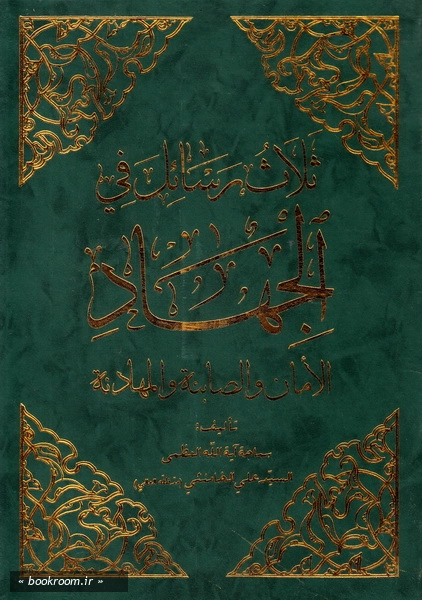 ثَلَاثُ رَسَائِلَ فِي
الْجِهَادِ
الأمان والصابئة والمهادنة
تأليف:
سماحة آية الله العظمى
السيد علي الخامنئي (دام ظله)
« bookroom.ir »